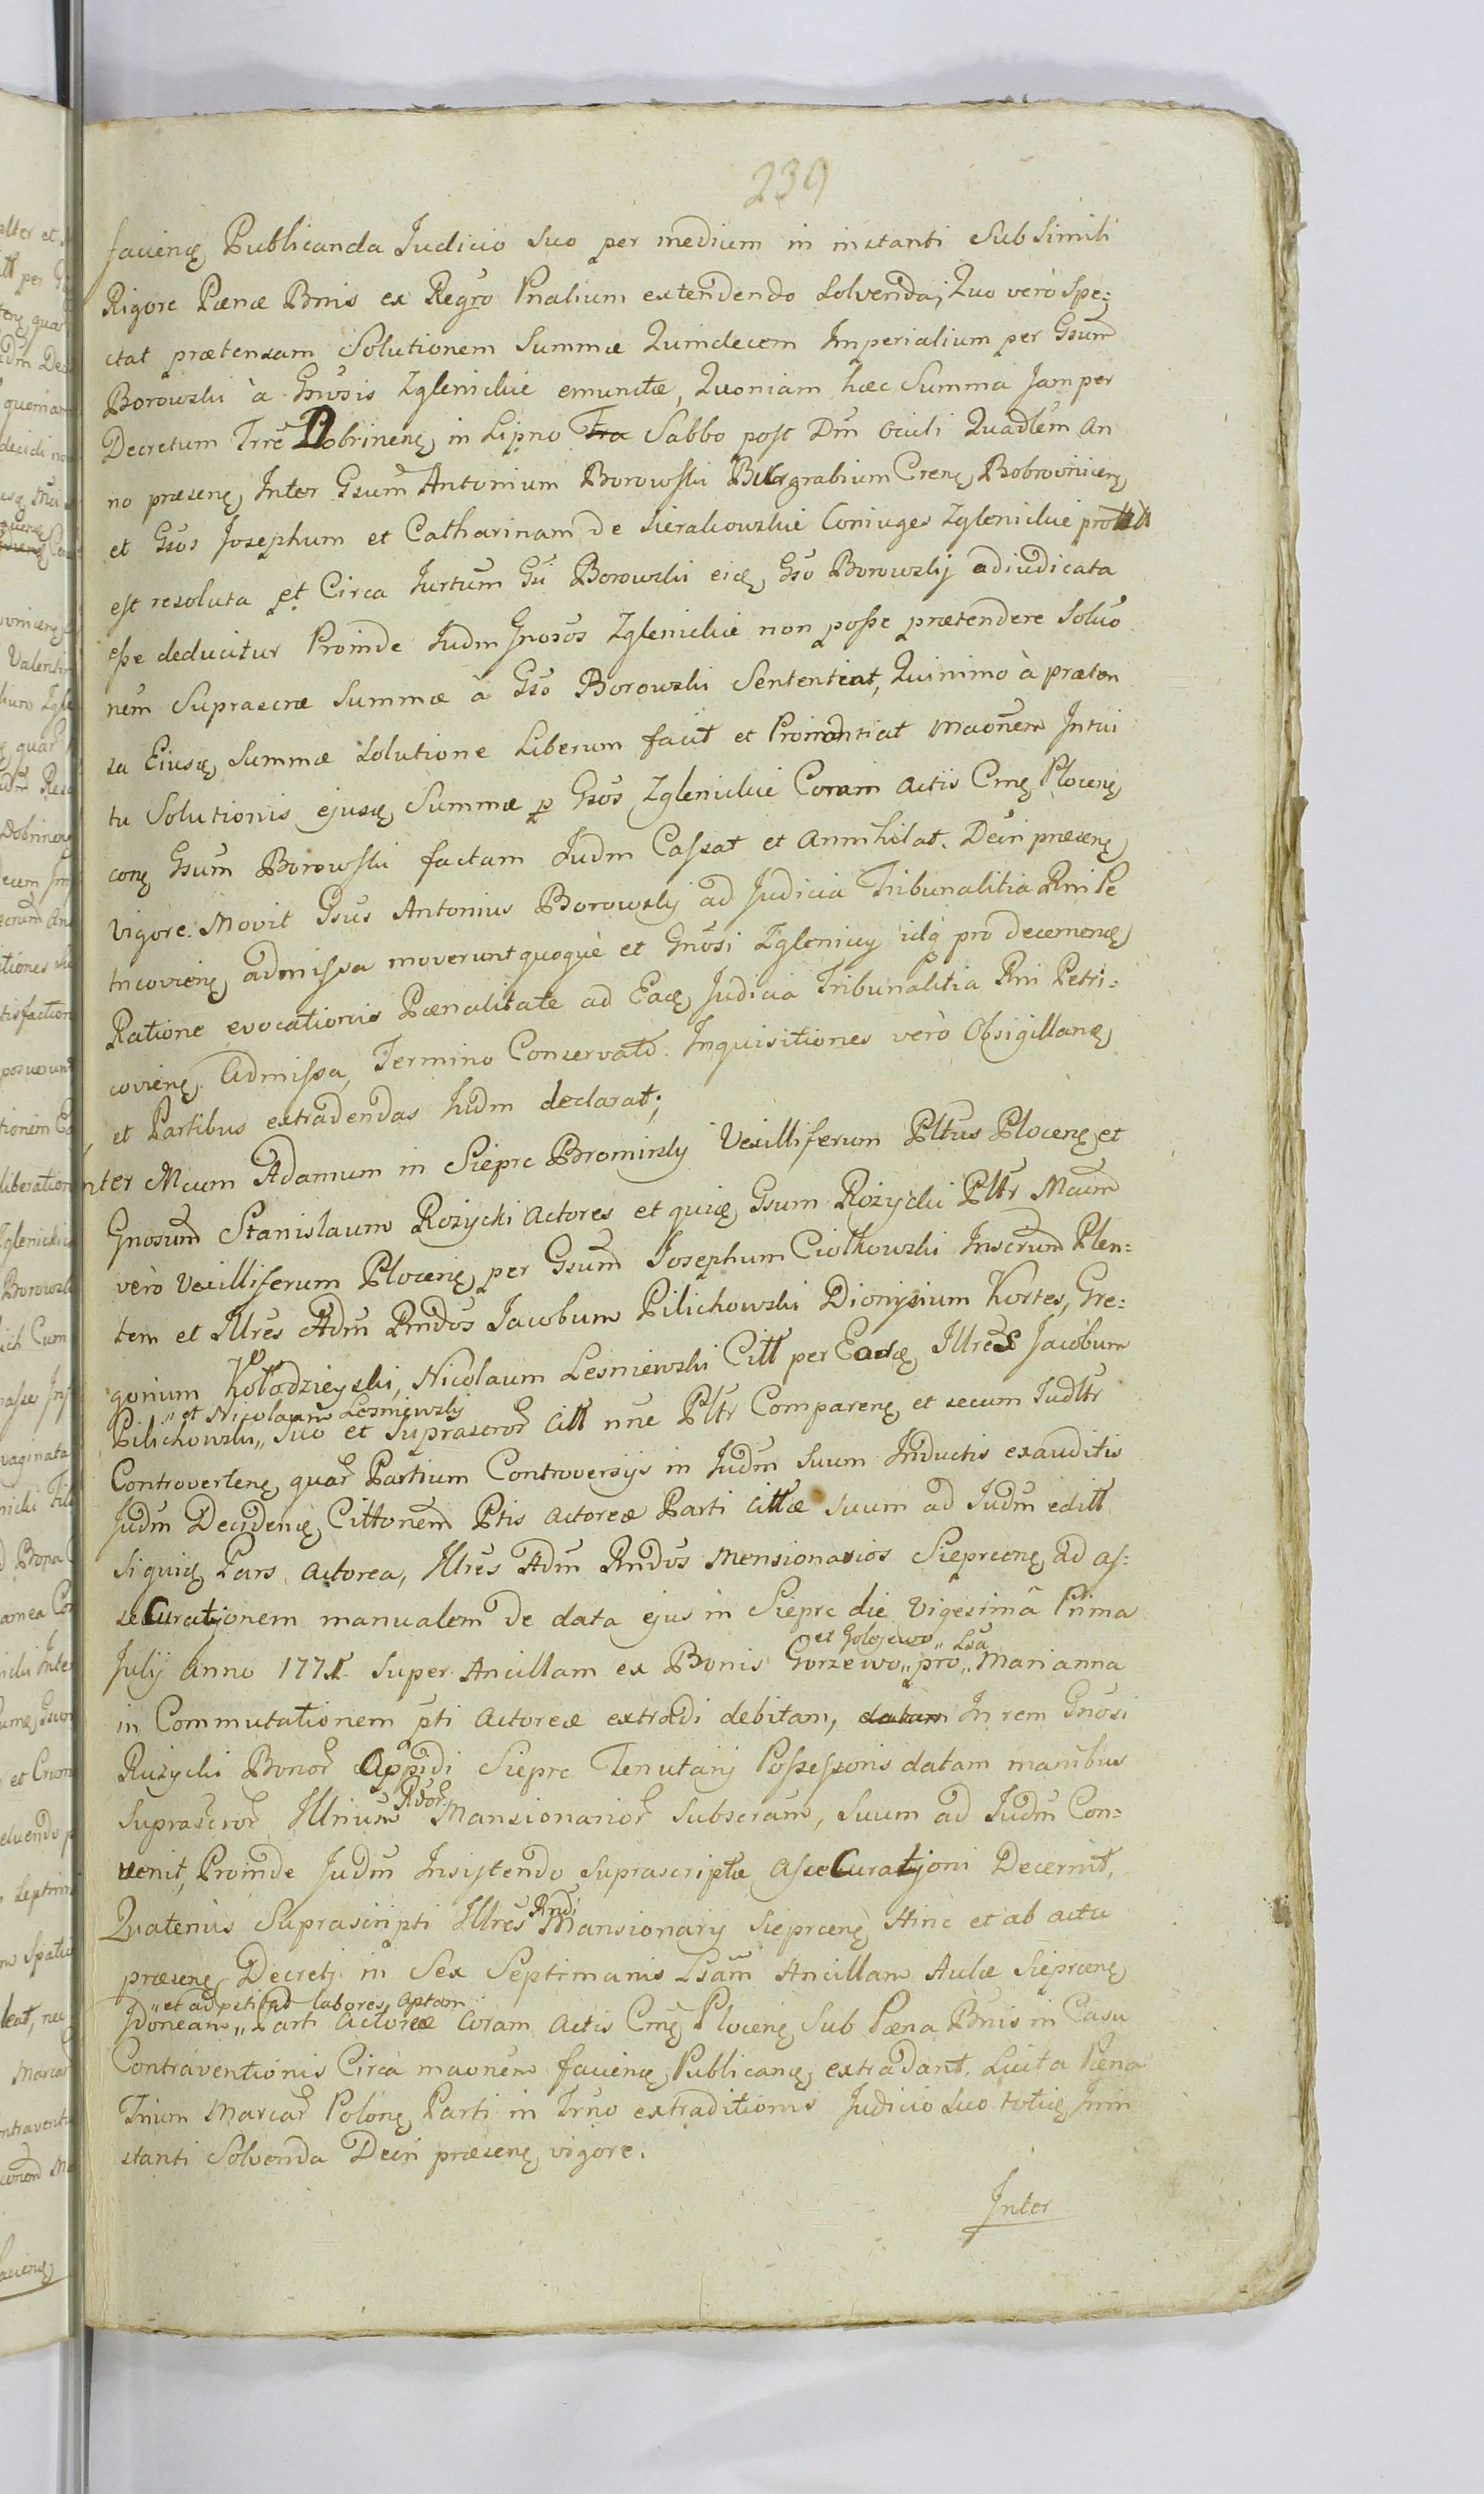 239
facienę Publicanda Iudicio suo per medium in instanti Sub simili
Rigore Pænæ Bnis ex Regro Pnalium extendendo Solvenda, Quo verò spe:
ctat prætensam Solutionem Summæ Quindecem Imperialium per Gsum
Borowski à Gnosis Zglenickie emunctæ, Quoniam hæc Summa Jam per
Decretum Trrē Dobrinenę in Lipno Fra Sabbo post Dm Oculi Quadlem An
no præsenę, Inter Gsum Antonium Borowski Burgrabium Crenę, Bobrovnicenę
et Gsos Josephum et Catharinam de Sierakowskie Coniuges Zglenickie
est resoluta et Circa Iurtum Gsi Borowski eię, Gso Borowsky adiudicata
esse deducitur Proinde Iudm Gnosos Zglenickie non posse prætendere Soluo
nem Suprascræ Summæ à Gso Borowski Sententiat, Quinimo à præten
sa Eiusę Summæ Solutione Liberum facit et Pronontiat maonem Intui
tu Solutionis ejusę, Summæ p Gsos Zglenickie Coram Actis Crnę Plocenę
conę Gsum Borowski factam Iudm Cassat et Annihilat. Decri præsenę
vigore. Movit Gsus Antonius Borowsky ad Judicia Tribunalitia Rni Pe
tricovienę admissa moverunt quoquè et Gnosi Zglenicy idq pro decemenę
Ratione evocationis Pænalitate ad Eaę Judicia Tribunalitia Rni Petri:
covienę Admissa, Termino Conservato. Inquisitiones verò Obsigillanę
et Partibus extradendas Iudm declarat;
nter Mcum Adamum in Sieprc Brominsky Vexilliferum Pltus Plocenę et
Gnosum Stanislaum Rozycki Actores et quię Gsum Rozycki Pltr Mcum
verò Vexilliferum Plocenę, per Gsum Josephum Ciolkowski Inscrum Plen:
tem et Illres Adm Rndos Jacobum Pilichowski Dionysium Kortes, Gre:
gorium Kołodzieyski, Nicolaum Lesniewski Citt per Eosdę Illres Jacobum
„et Nicolaum Lesniewsky
Pilichowski„ suo et suprascror citt nne Pltr Comparenę et secum Iudltr
Controvertenę, quar Partium Controversijs in Iudm suum Inductis exauditis
Judm Decidenię, Cittonem Ptis Actoreæ Parti cittæ suum ad Iudm editt
siquię Pars Actorea, Illres Adm Rndos Mensionarios Sieprcenę ad as:
seCuratjonem manualem de data ejus in Sieprc die Vigesimâ Prima
et Golejewo„ Lsa
Julij Anno 1771 super Ancillam ex Bonis Gorzewo„ pro„ Marianna
in Commutationem pti Actoreæ extradi debitam, datam In rem Gnosi
Ruzycki Bonor Oppidi Sieprc Tenutarij Possessoris datam manibus
Rdor
Suprascror Illrium Mansionarior Subscram, suum ad Iudm Con:
venit, Proinde Judm Insistendo suprascriptæ AsseCuratjoni Decernit,
Rndi
Quatenus Suprascripti Illres Mansionarij Sieprcenę Hinc et ab actu
præsenę Decretj in Sex Septimanis Lsam Ancillam Aulæ Sieprcenę
„et ad labores Aptam
Idoneam„ Parti Actoreæ Coram Actis Crnę Plocenę Sub Pæna Bnis in Casu
Contraventionis Circa maonem facienę Publicanę, extradant. Luita Pæna
Trium Marcar Polonę Parti in Trno extraditionis Judicio Suo totię Inin
stanti Solvenda Decri præsenę vigore.
Inter